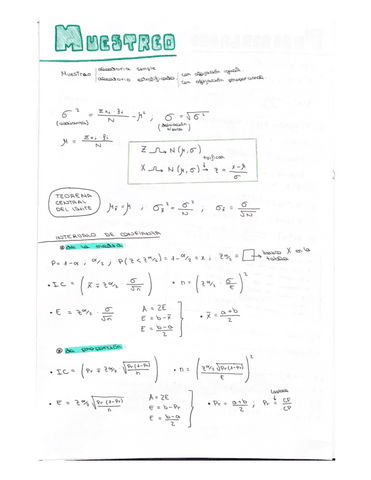 MUESTREO
MUESTREO aleatorio simple
aleatorio estratificado con afijación iguale
con afijación proporcional
σ² = Σxᵢ·fᵢ / N - μ² ; σ = √σ²
(varianza) (desviación típica)
μ = Σxᵢ·fᵢ / N
Z → N(μ,σ)
tipificar
X → N(μ,σ) → z = x-μ / σ
TEOREMA CENTRAL DEL LÍMITE
μx̄ = μ ; σ²x̄ = σ² / N ; σx̄ = σ / √N
INTERVALO DE CONFIANZA
de la media
P = 1-α ; α/2 ; P(Z<Zα/2) = 1-α/2 = x ; Zα/2 = □ → busco X en la tabla
• IC = (x̄ ∓ Zα/2 · σ/√n) • n = (Zα/2 · σ/E)²
• E = Zα/2 · σ/√n A = 2E • x̄ = a+b / 2
E = b-x̄
E = b-a / 2
de proporción
• IC = (Pr ∓ Zα/2 · √Pr(1-Pr) / n) • n = (Zα/2 √Pr(1-Pr) / E)²
• E = Zα/2 √Pr(1-Pr) / n A = 2E • Pr = a+b / 2 ; Pr = CF / CP
E = b-Pr
E = b-a / 2